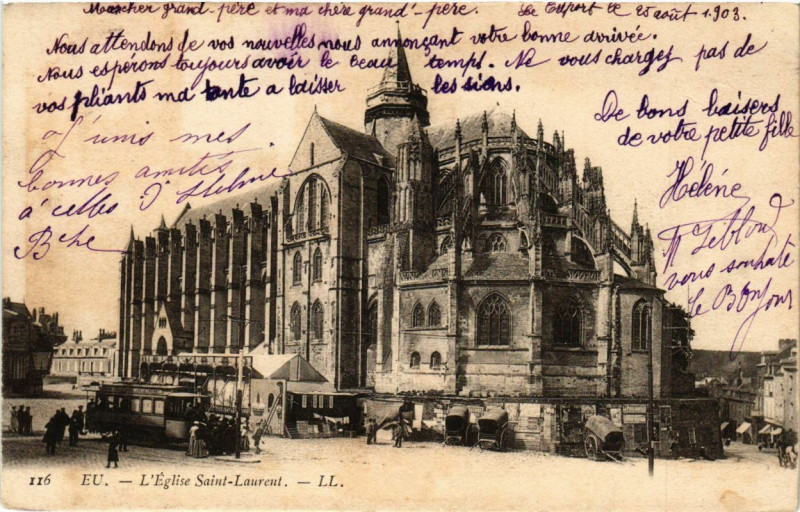 Mon cher grand-père et ma chère grand'-père. Le Tréport le 25 août 1903.
Nous attendons de vos nouvelles nous annonçant votre bonne arrivée.
Nous espérons toujours avoir le beau temps. Ne vous chargez pas de
vos pliants ma tante a laisser les siens.
De bons baisers
de votre petite fille
Hélène
J'unis mes
bonnes amitiés
à celles d'Hélène
Bche
Leblond
vous souhaite
le Bonjour
116 EU. — L'Église Saint-Laurent. — LL.